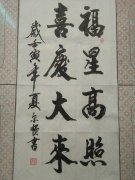 福星高照
喜慶大來
歲在壬寅年夏宗賢書